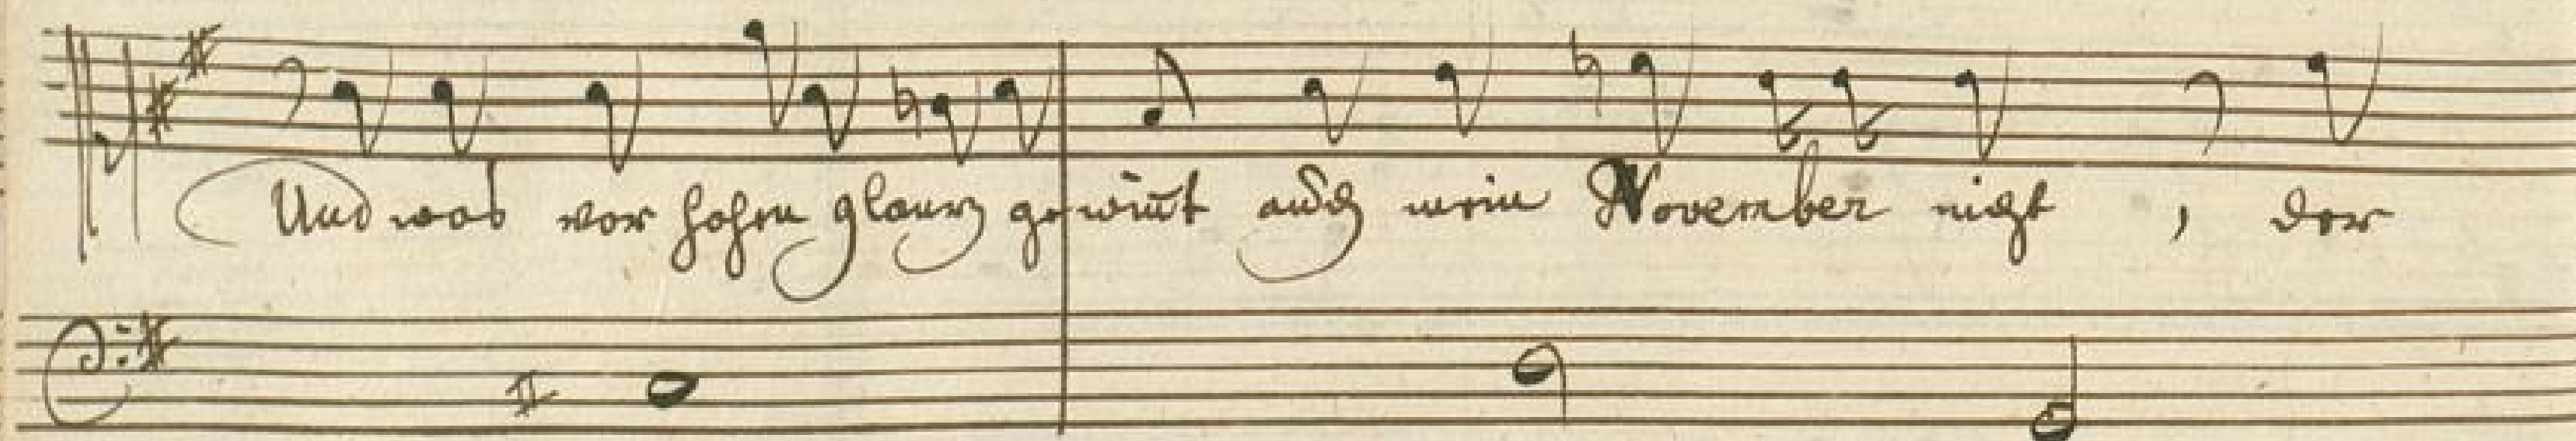 Und was vor hohen glantz gewiñt auch mein November nicht, der